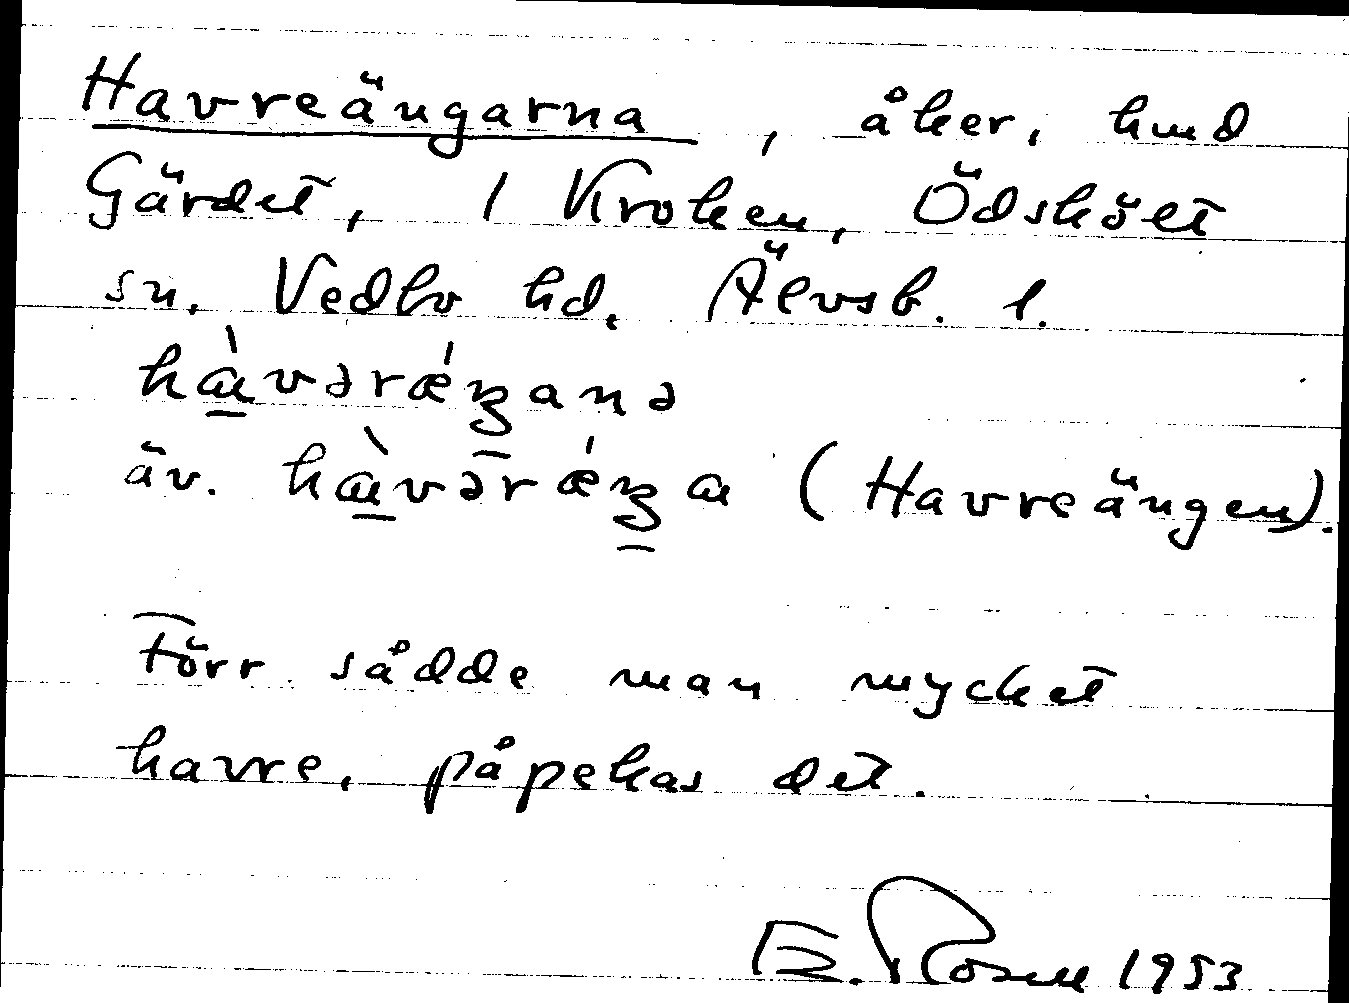 Havreängarna, åker, hmd
Gärdet, 1 Kroken, Ödskölt
sn. Vedbo hd. Älvsb. l.
hàvərǽŋana
äv. hàvərǽŋa (Havreängen).
Förr sådde man mycket
havre, påpekas det.
E. Rosell 1953